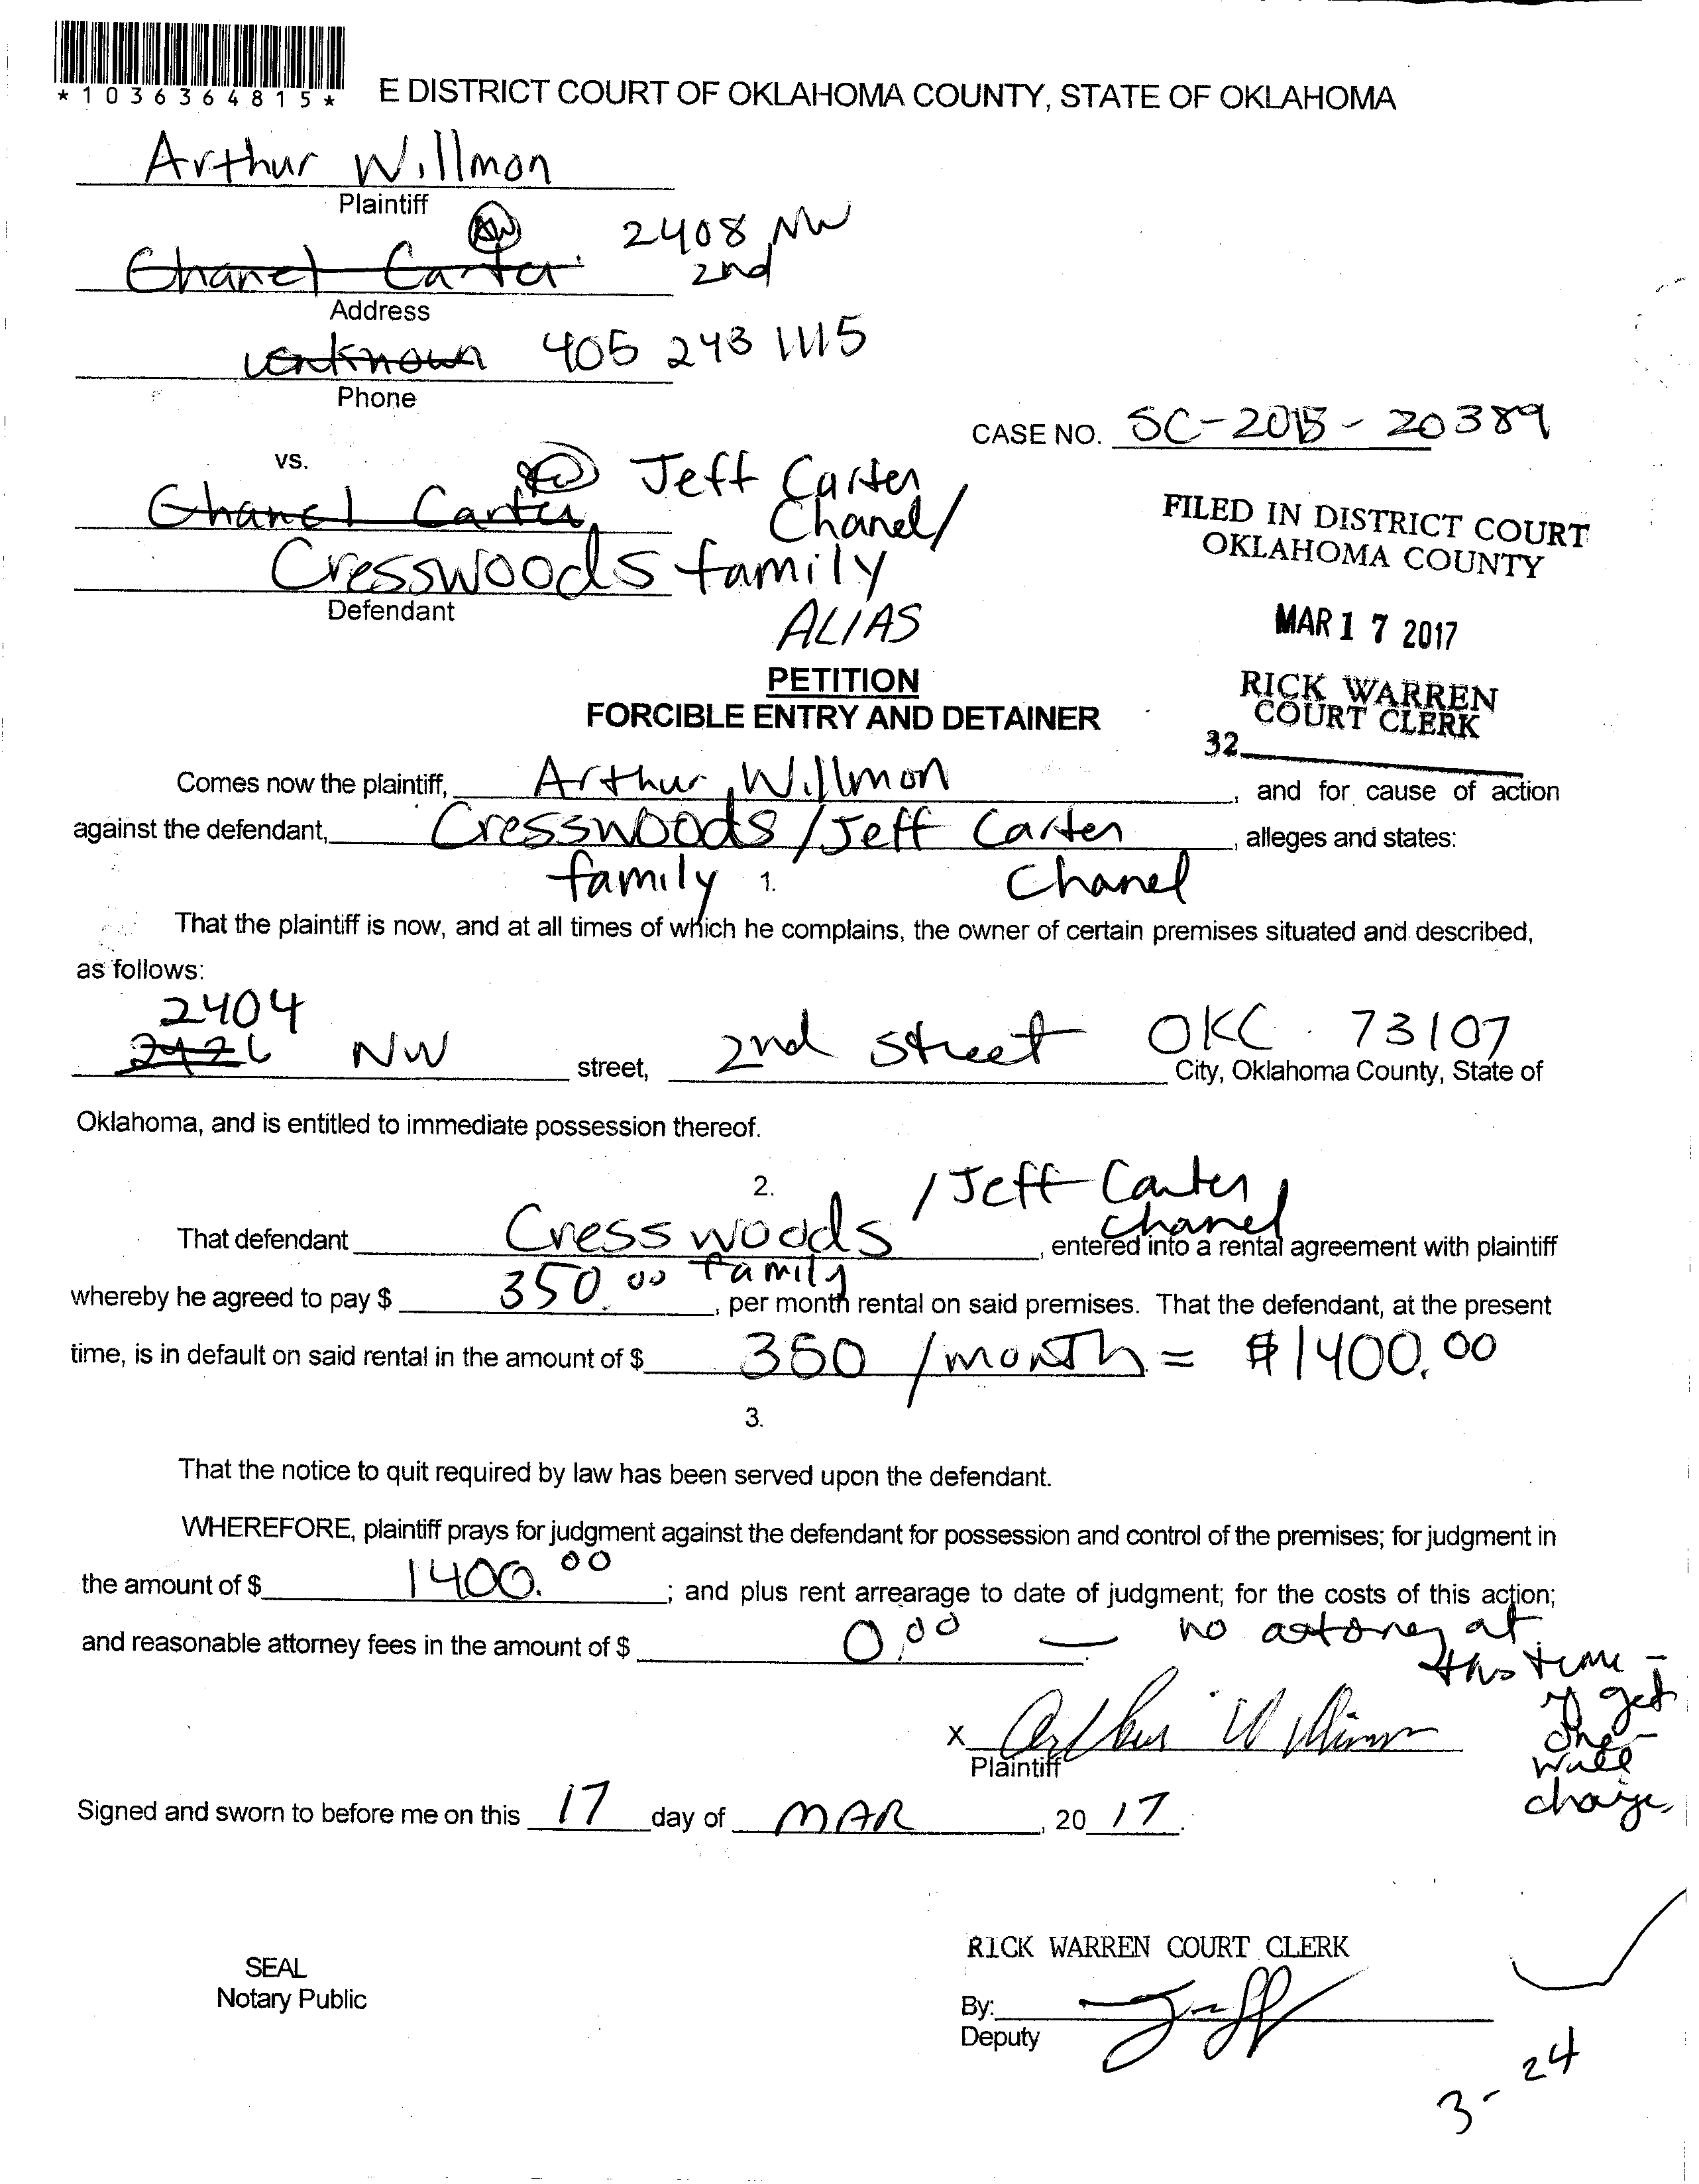 *1036364815*
E DISTRICT COURT OF OKLAHOMA COUNTY, STATE OF OKLAHOMA
Arthur Willmon
Plaintiff
AW 2408 NW
Chanel Carter 2nd
Address
unknown 405 243 1115
Phone
CASE NO. SC-2015-20389
vs.
Chanel Carter Jeff Carter
Chanel/
Cresswoods family
Defendant
ALIAS
FILED IN DISTRICT COURT
OKLAHOMA COUNTY
MAR 17 2017
RICK WARREN
COURT CLERK
32
PETITION
FORCIBLE ENTRY AND DETAINER
Comes now the plaintiff, Arthur Willmon, and for cause of action
against the defendant, Cresswoods / Jeff Carter, alleges and states:
family 1. Chanel
That the plaintiff is now, and at all times of which he complains, the owner of certain premises situated and described,
as follows:
2404
2426 NW street, 2nd street OKC 73107 City, Oklahoma County, State of
Oklahoma, and is entitled to immediate possession thereof.
2. / Jeff Carter
Chanel
That defendant Cresswoods, entered into a rental agreement with plaintiff
family
whereby he agreed to pay $ 350.00, per month rental on said premises. That the defendant, at the present
time, is in default on said rental in the amount of $ 350 /month = $1400.00
3.
That the notice to quit required by law has been served upon the defendant.
WHEREFORE, plaintiff prays for judgment against the defendant for possession and control of the premises; for judgment in
the amount of $ 1400.00; and plus rent arrearage to date of judgment; for the costs of this action;
and reasonable attorney fees in the amount of $ 0.00 — no astoney at
this time -
if get
one -
will
charge.
x Arthur Willmon
Plaintiff
Signed and sworn to before me on this 17 day of MAR, 20 17.
SEAL
Notary Public
RICK WARREN COURT CLERK
By:
Deputy
3-24